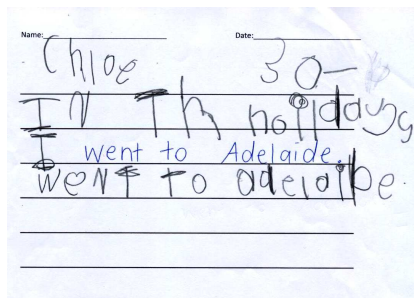 Name: Date:
Chloe 30-
IN Th hollddays
I went to Adelaide.
weNT To adelaibe